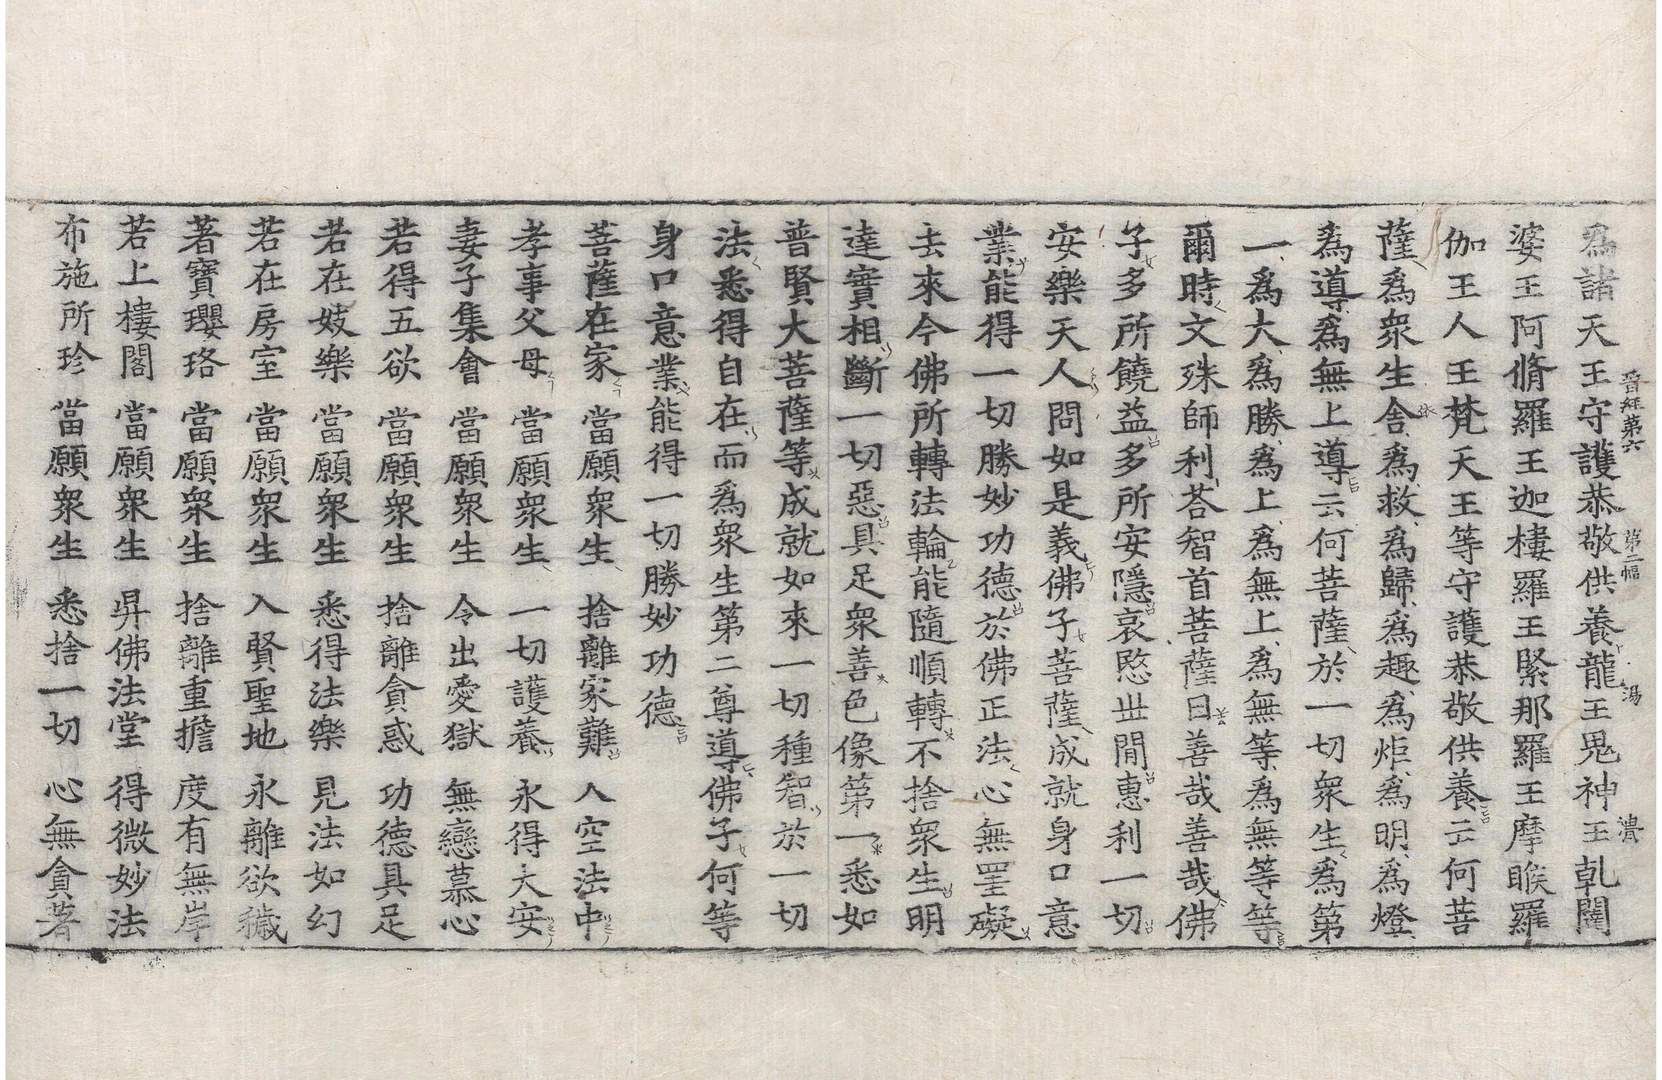 爲諸天王守護恭敬供養龍王鬼神王乹闥
晋經第六 第二幅 湯 濃
婆王阿脩羅王迦樓羅王緊那羅王摩睺羅
伽王人王梵天王等守護恭敬供養云何菩
薩爲衆生舍爲救爲歸爲趣爲炬爲明爲燈
爲導爲無上導云何菩薩於一切衆生爲第
一爲大爲勝爲上爲無上爲無等爲無等等
爾時文殊師利荅智首菩薩曰善哉善哉佛
子多所饒益多所安隱哀愍世閒惠利一切
安樂天人問如是義佛子菩薩成就身口意
業能得一切勝妙功德於佛正法心無罣礙
去來今佛所轉法輪能隨順轉不捨衆生明
達實相斷一切惡具足衆善色像第一悉如
普賢大菩薩等成就如來一切種智於一切
法悉得自在而爲衆生第二尊導佛子何等
身口意業能得一切勝妙功德
菩薩在家 當願衆生 捨離家難 入空法中
孝事父母 當願衆生 一切護養 永得大安
妻子集會 當願衆生 令出愛獄 無戀慕心
若得五欲 當願衆生 捨離貪惑 功德具足
若在妓樂 當願衆生 悉得法樂 見法如幻
若在房室 當願衆生 入賢聖地 永離欲穢
著寶瓔珞 當願衆生 捨離重擔 度有無岸
若上樓閣 當願衆生 昇佛法堂 得微妙法
布施所珍 當願衆生 悉捨一切 心無貪著